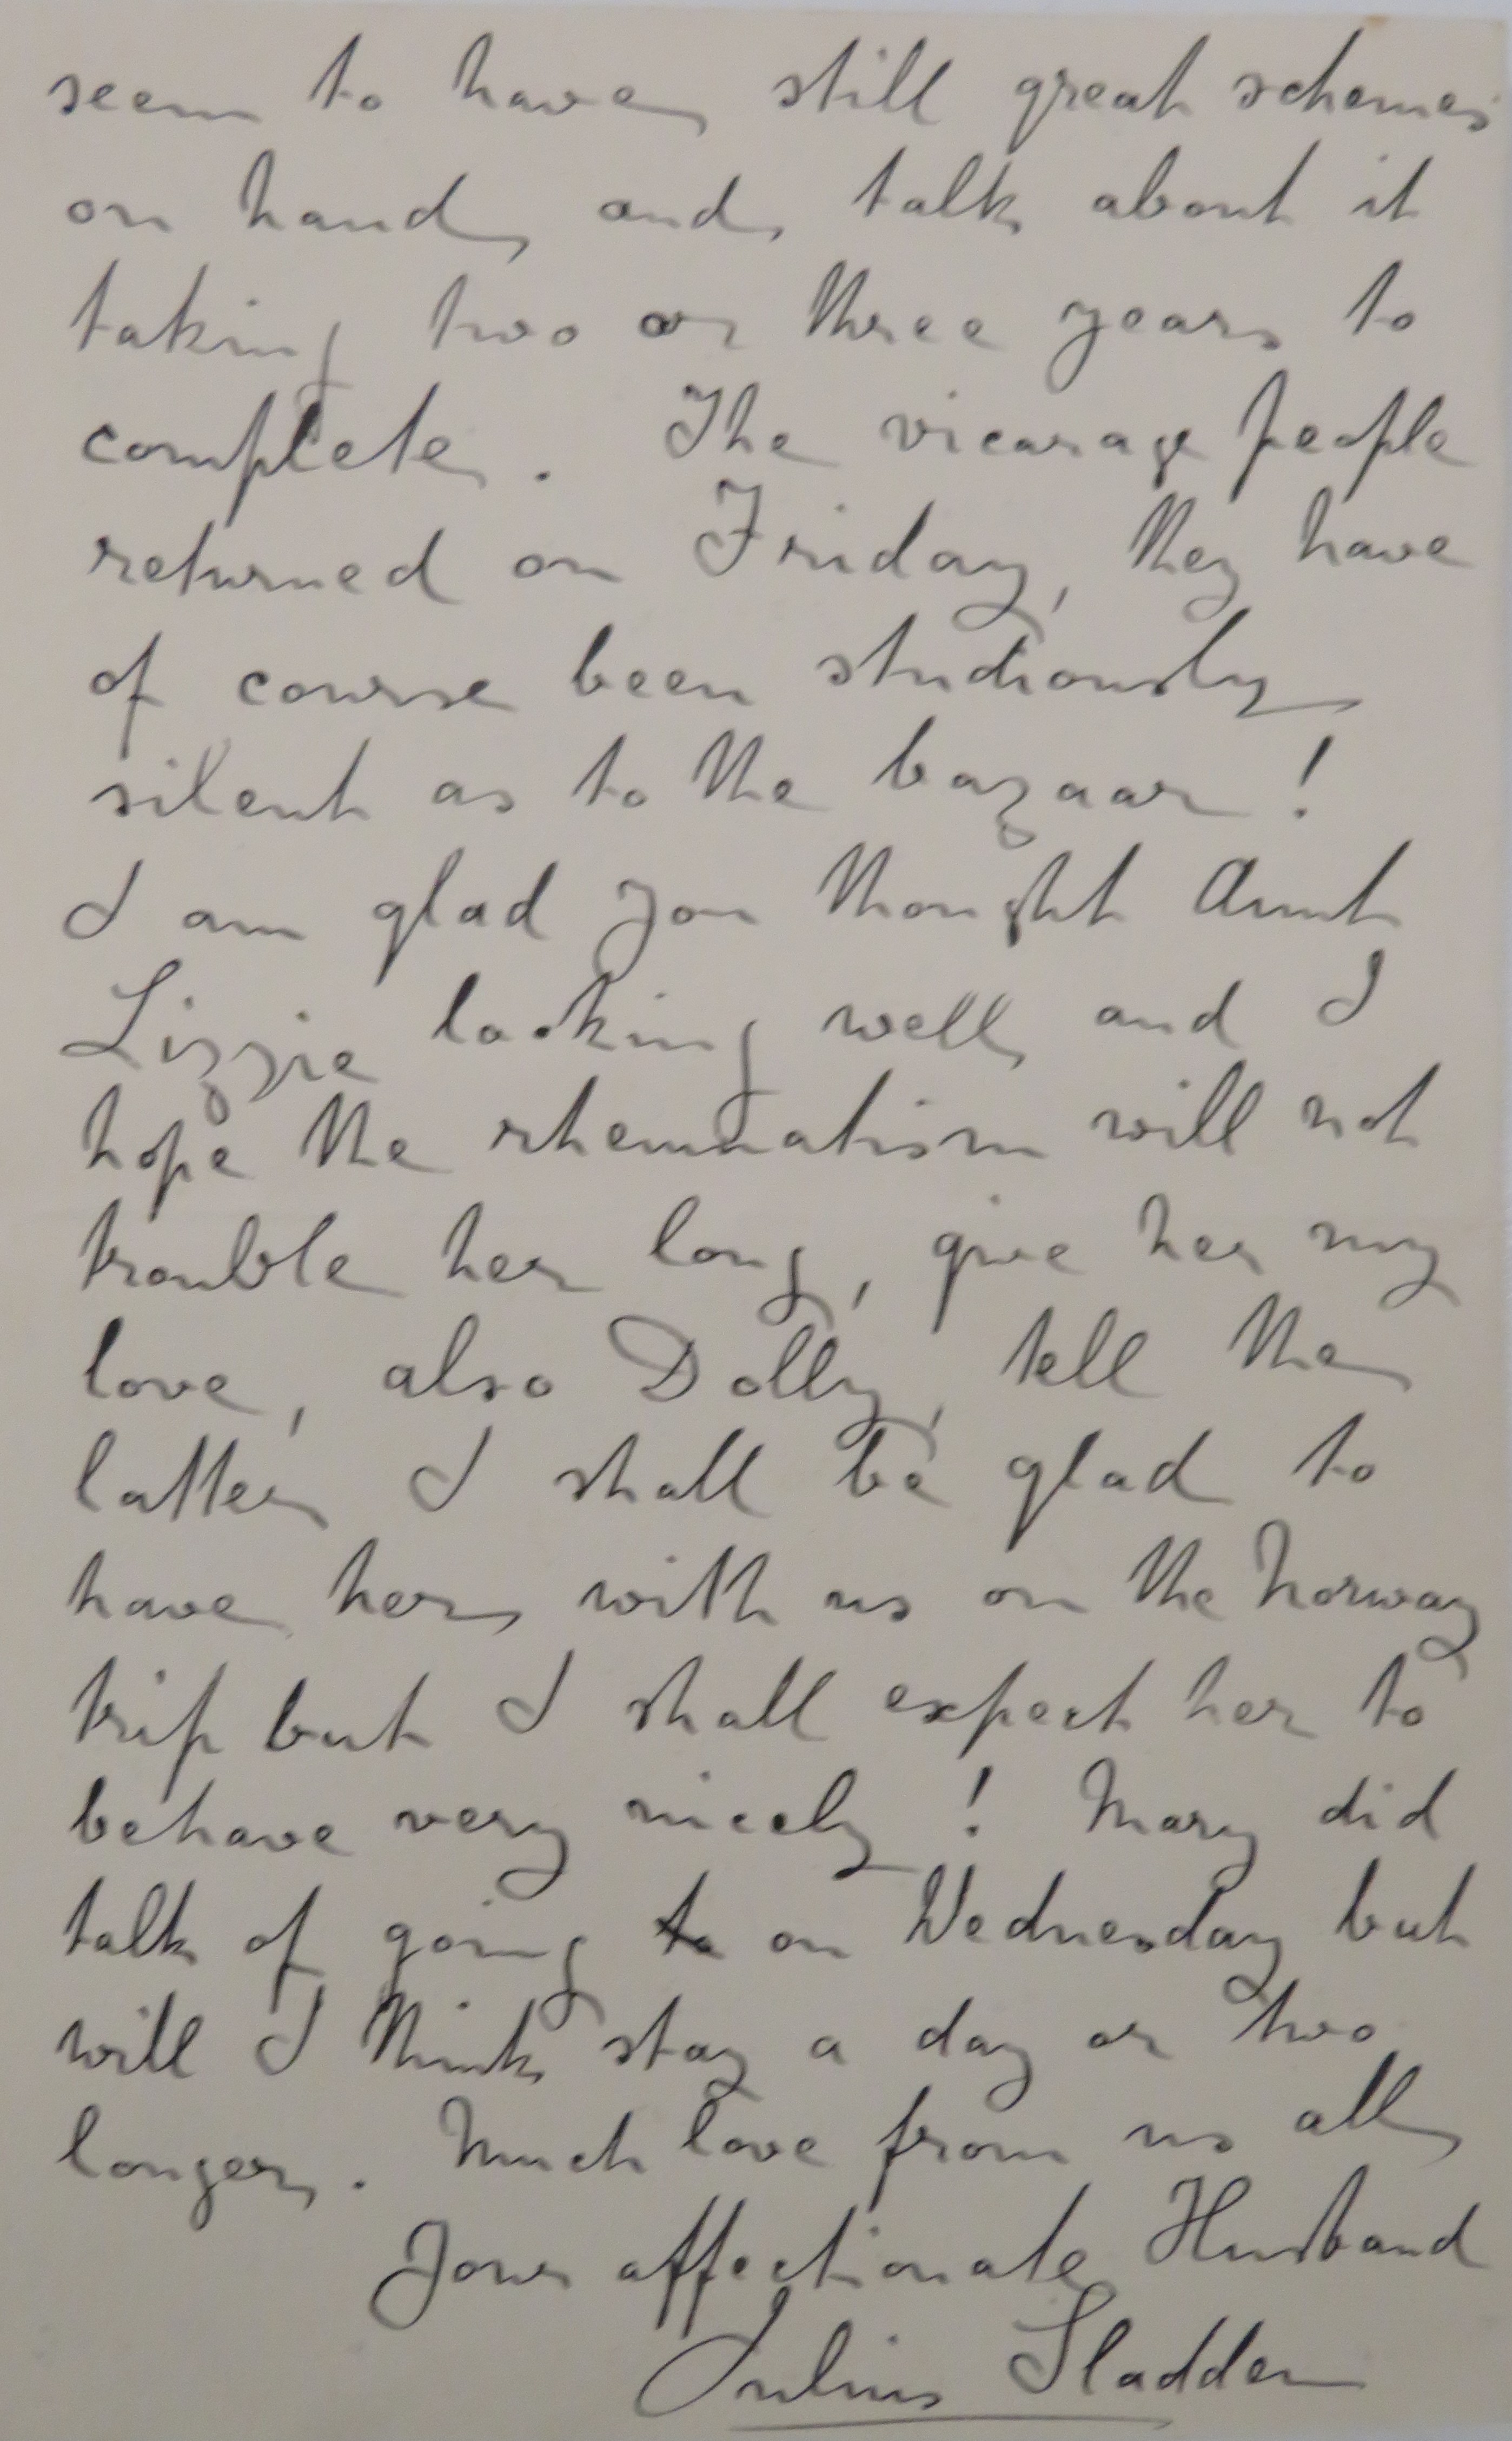 seem to have still great schemes
on hand and talk about it
taking two or three years to
complete. The vicarage people
returned on Friday, they have
of course been studiously
silent as to the bazaar!
I am glad you thought Aunt
Lizzie looking well and I
hope the rheumatism will not
trouble her long, give her my
love, also Dolly, tell the
latter I shall be glad to
have her with us on the Norway
trip but I shall expect her to
behave very nicely! Mary did
talk of going to on Wednesday but
will I think stay a day or two
longer. Much love from us all
Your affectionate Husband
Julius Sladden